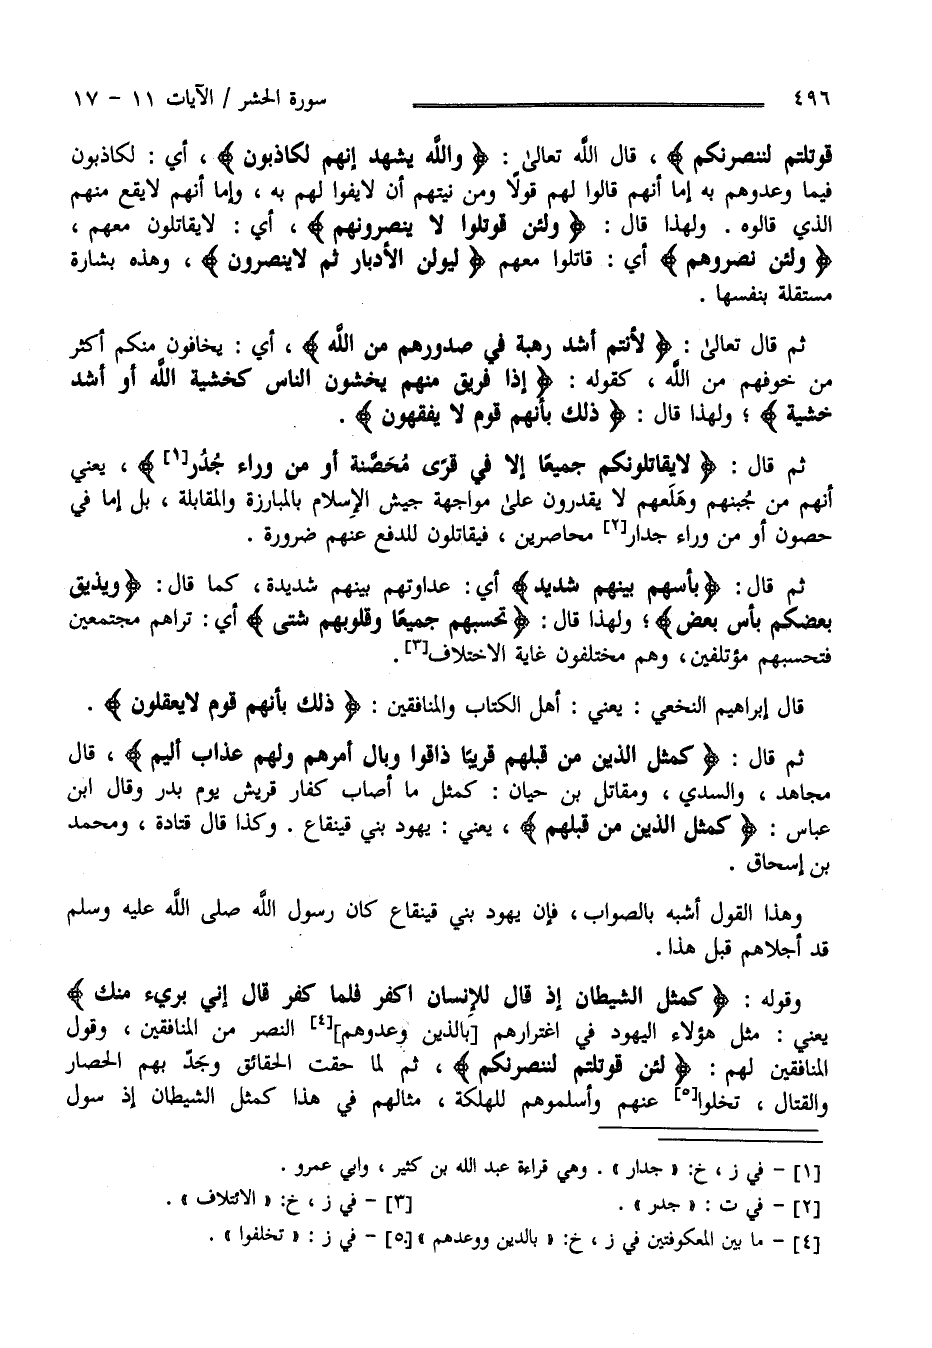 ٤٩٦ سورة الحشر / الآيات ١١ - ١٧
قوتلتم لننصرنكم ﴾ ، قال اللَّه تعالىٰ : ﴿ واللَّه يشهد إنهم لكاذبون ﴾ ، أي : لكاذبون
فيما وعدوهم به إما أنهم قالوا لهم قولًا ومن نيتهم أن لايفوا لهم به ، وإما أنهم لايقع منهم
الذي قالوه . ولهذا قال : ﴿ ولئن قوتلوا لا ينصرونهم ﴾ ، أي : لايقاتلون معهم ،
﴿ ولئن نصروهم ﴾ أي : قاتلوا معهم ﴿ ليولن الأدبار ثم لاينصرون ﴾ ، وهذه بشارة
مستقلة بنفسها .
ثم قال تعالىٰ : ﴿ لأنتم أشد رهبة في صدورهم من اللَّه ﴾ ، أي : يخافون منكم أكثر
من خوفهم من اللَّه ، كقوله : ﴿ إذا فريق منهم يخشون الناس كخشية اللَّه أو أشد
خشية ﴾ ؛ ولهذا قال : ﴿ ذلك بأنهم قوم لا يفقهون ﴾ .
ثم قال : ﴿ لايقاتلونكم جميعًا إلا في قرًى مُحَصَّنة أو من وراء جُدُر[١] ﴾ ، يعني
أنهم من جُبنهم وهَلَعهم لا يقدرون علىٰ مواجهة جيش الإسلام بالمبارزة والمقابلة ، بل إما في
حصون أو من وراء جدار[٢] محاصرين ، فيقاتلون للدفع عنهم ضرورة .
ثم قال : ﴿بأسهم بينهم شديد﴾ أي : عداوتهم بينهم شديدة، كما قال : ﴿ويذيق
بعضكم بأس بعض﴾؛ ولهذا قال : ﴿تحسبهم جميعًا وقلوبهم شتى ﴾ أي : تراهم مجتمعين
فتحسبهم مؤتلفين، وهم مختلفون غاية الاختلاف[٣].
قال إبراهيم النخعي : يعني : أهل الكتاب والمنافقين : ﴿ ذلك بأنهم قوم لايعقلون ﴾ .
ثم قال : ﴿ كمثل الذين من قبلهم قريبًا ذاقوا وبال أمرهم ولهم عذاب أليم ﴾ ، قال
مجاهد ، والسدي ، ومقاتل بن حيان : كمثل ما أصاب كفار قريش يوم بدر وقال ابن
عباس : ﴿ كمثل الذين من قبلهم ﴾ ، يعني : يهود بني قينقاع . وكذا قال قتادة ، ومحمد
بن إسحاق .
وهذا القول أشبه بالصواب، فإن يهود بني قينقاع كان رسول اللَّه صلى اللَّه عليه وسلم
قد أجلاهم قبل هذا.
وقوله : ﴿ كمثل الشيطان إذ قال للإنسان اكفر فلما كفر قال إني بريء منك ﴾
يعني : مثل هؤلاء اليهود في اغترارهم [بالذين وعدوهم][٤] النصر من المنافقين ، وقول
المنافقين لهم : ﴿ لئن قوتلتم لننصرنكم ﴾ ، ثم لما حقت الحقائق وجَدّ بهم الحصار
والقتال ، تخلوا[٥] عنهم وأسلموهم للهلكة ، مثالهم في هذا كمثل الشيطان إذ سول
[١] - في ز ، خ: « جدار » . وهي قراءة عبد الله بن كثير ، وابي عمرو .
[٢] - في ت : « جدر » . [٣] - في ز ، خ: « الائتلاف » .
[٤] - ما بين المعكوفتين في ز ، خ: « بالدين ووعدهم »[٥] - في ز : « تخلفوا » .